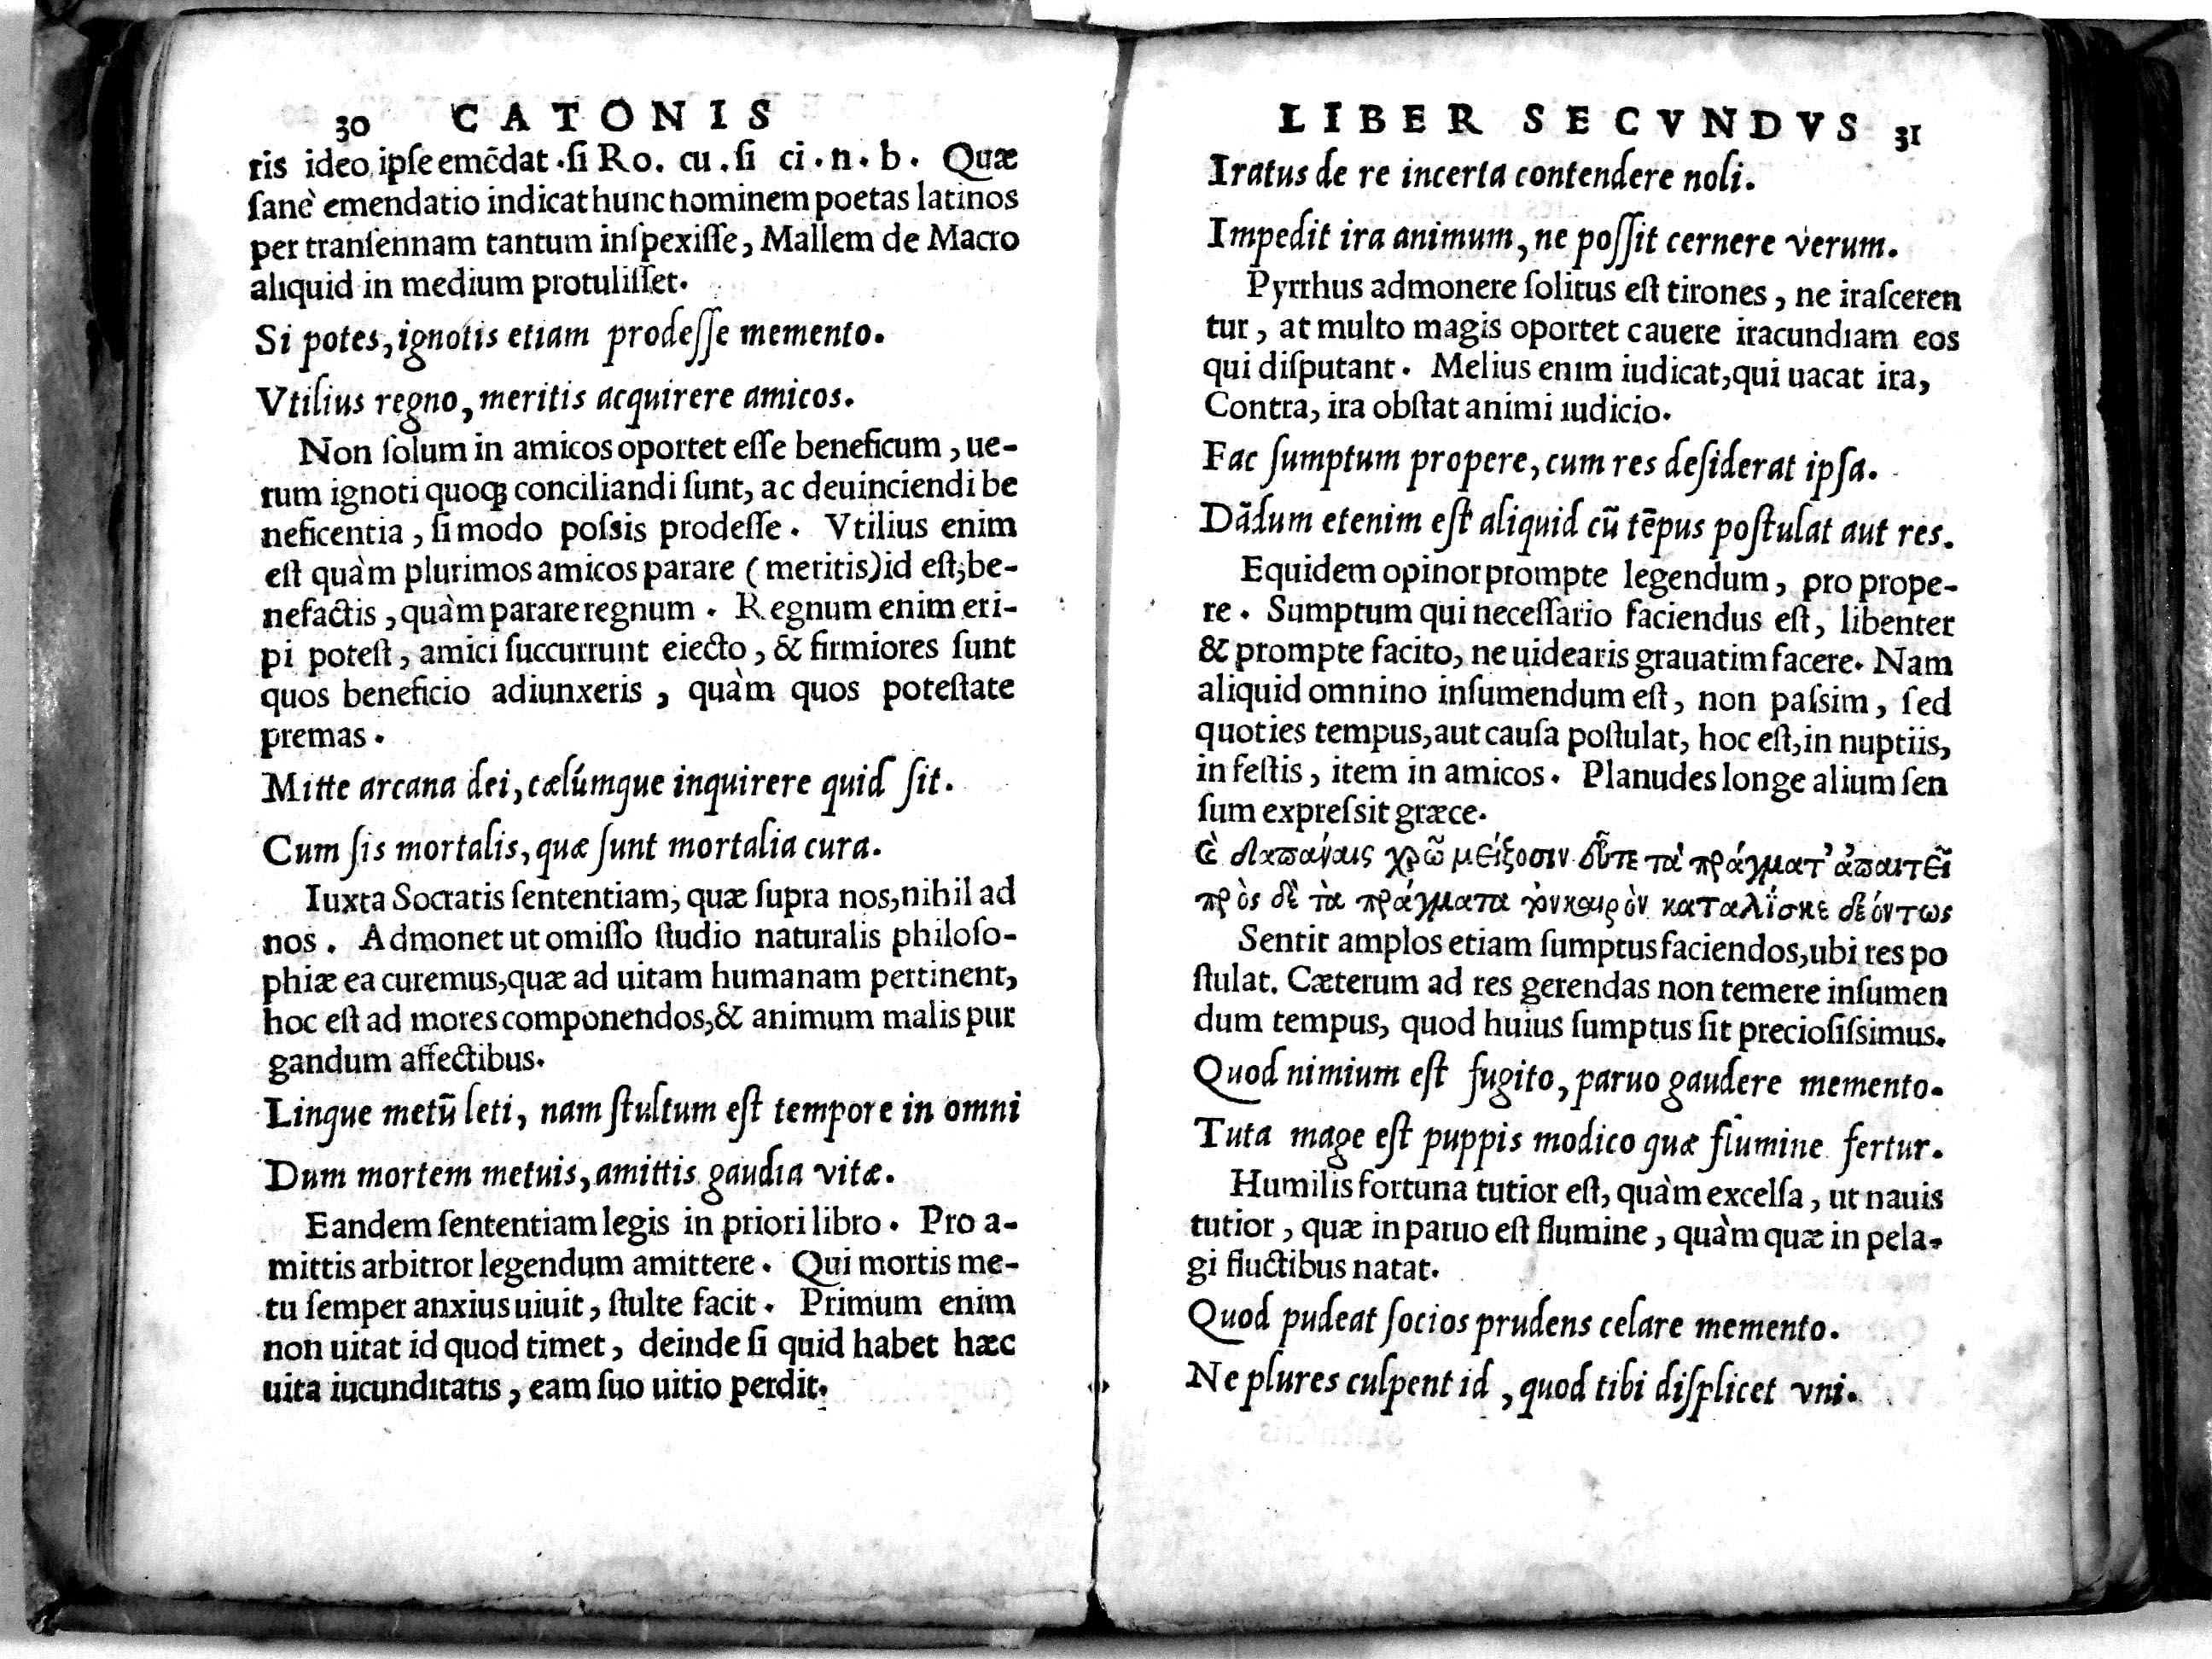 30 CATONIS
ris ideo ipſe emēdat .ſi Ro. cu . ſi ci . n . b . Quæ
ſanè emendatio indicat hunc hominem poetas latinos
per tranſennam tantum inſpexiſſe, Mallem de Macro
aliquid in medium protuliſſet.
Si potes, ignotis etiam prodeſſe memento.
Vtilius regno, meritis acquirere amicos.
Non ſolum in amicos oportet eſſe beneficum, ue-
rum ignoti quoq; conciliandi ſunt, ac deuinciendi be
neficentia, ſi modo poſsis prodeſſe. Vtilius enim
eſt quàm plurimos amicos parare (meritis) id eſt, be-
nefactis, quàm parare regnum. Regnum enim eri-
pi poteſt, amici ſuccurrunt eiecto, & firmiores ſunt
quos beneficio adiunxeris, quàm quos poteſtate
premas.
Mitte arcana dei, cælúmque inquirere quid ſit.
Cum ſis mortalis, quæ ſunt mortalia cura.
Iuxta Socratis ſententiam, quæ ſupra nos, nihil ad
nos. Admonet ut omiſſo ſtudio naturalis philoſo-
phiæ ea curemus, quæ ad uitam humanam pertinent,
hoc eſt ad mores componendos, & animum malis pur
gandum affectibus.
Linque metū leti, nam ſtultum eſt tempore in omni
Dum mortem metuis, amittis gaudia vitæ.
Eandem ſententiam legis in priori libro. Pro a-
mittis arbitror legendum amittere. Qui mortis me-
tu ſemper anxius uiuit, ſtulte facit. Primum enim
non uitat id quod timet, deinde ſi quid habet hæc
uita iucunditatis, eam ſuo uitio perdit.
LIBER SECVNDVS 31
Iratus de re incerta contendere noli.
Impedit ira animum, ne poſſit cernere verum.
Pyrrhus admonere ſolitus eſt tirones, ne iraſceren
tur, at multo magis oportet cauere iracundiam eos
qui diſputant. Melius enim iudicat, qui uacat ira,
Contra, ira obſtat animi iudicio.
Fac ſumptum propere, cum res deſiderat ipſa.
Dādum etenim eſt aliquid cū tēpus poſtulat aut res.
Equidem opinor prompte legendum, pro prope-
re. Sumptum qui neceſſario faciendus eſt, libenter
& prompte facito, ne uidearis grauatim facere. Nam
aliquid omnino inſumendum eſt, non paſsim, ſed
quoties tempus, aut cauſa poſtulat, hoc eſt, in nuptiis,
in feſtis, item in amicos. Planudes longe alium ſen
ſum expreſsit græce.
δαπάναις χρῶ μείζοσιν τὰ πράγματ' ἀπαιτεῖ
πρὸς δὲ τὰ πράγματα καταλίσκε δεόντως
Sentit amplos etiam ſumptus faciendos, ubi res po
ſtulat. Cæterum ad res gerendas non temere inſumen
dum tempus, quod huius ſumptus ſit precioſiſsimus.
Quod nimium eſt fugito, paruo gaudere memento.
Tuta mage eſt puppis modico quæ flumine fertur.
Humilis fortuna tutior eſt, quàm excelſa, ut nauis
tutior, quæ in paruo eſt flumine, quàm quæ in pela-
gi fluctibus natat.
Quod pudeat ſocios prudens celare memento.
Ne plures culpent id, quod tibi diſplicet vni.